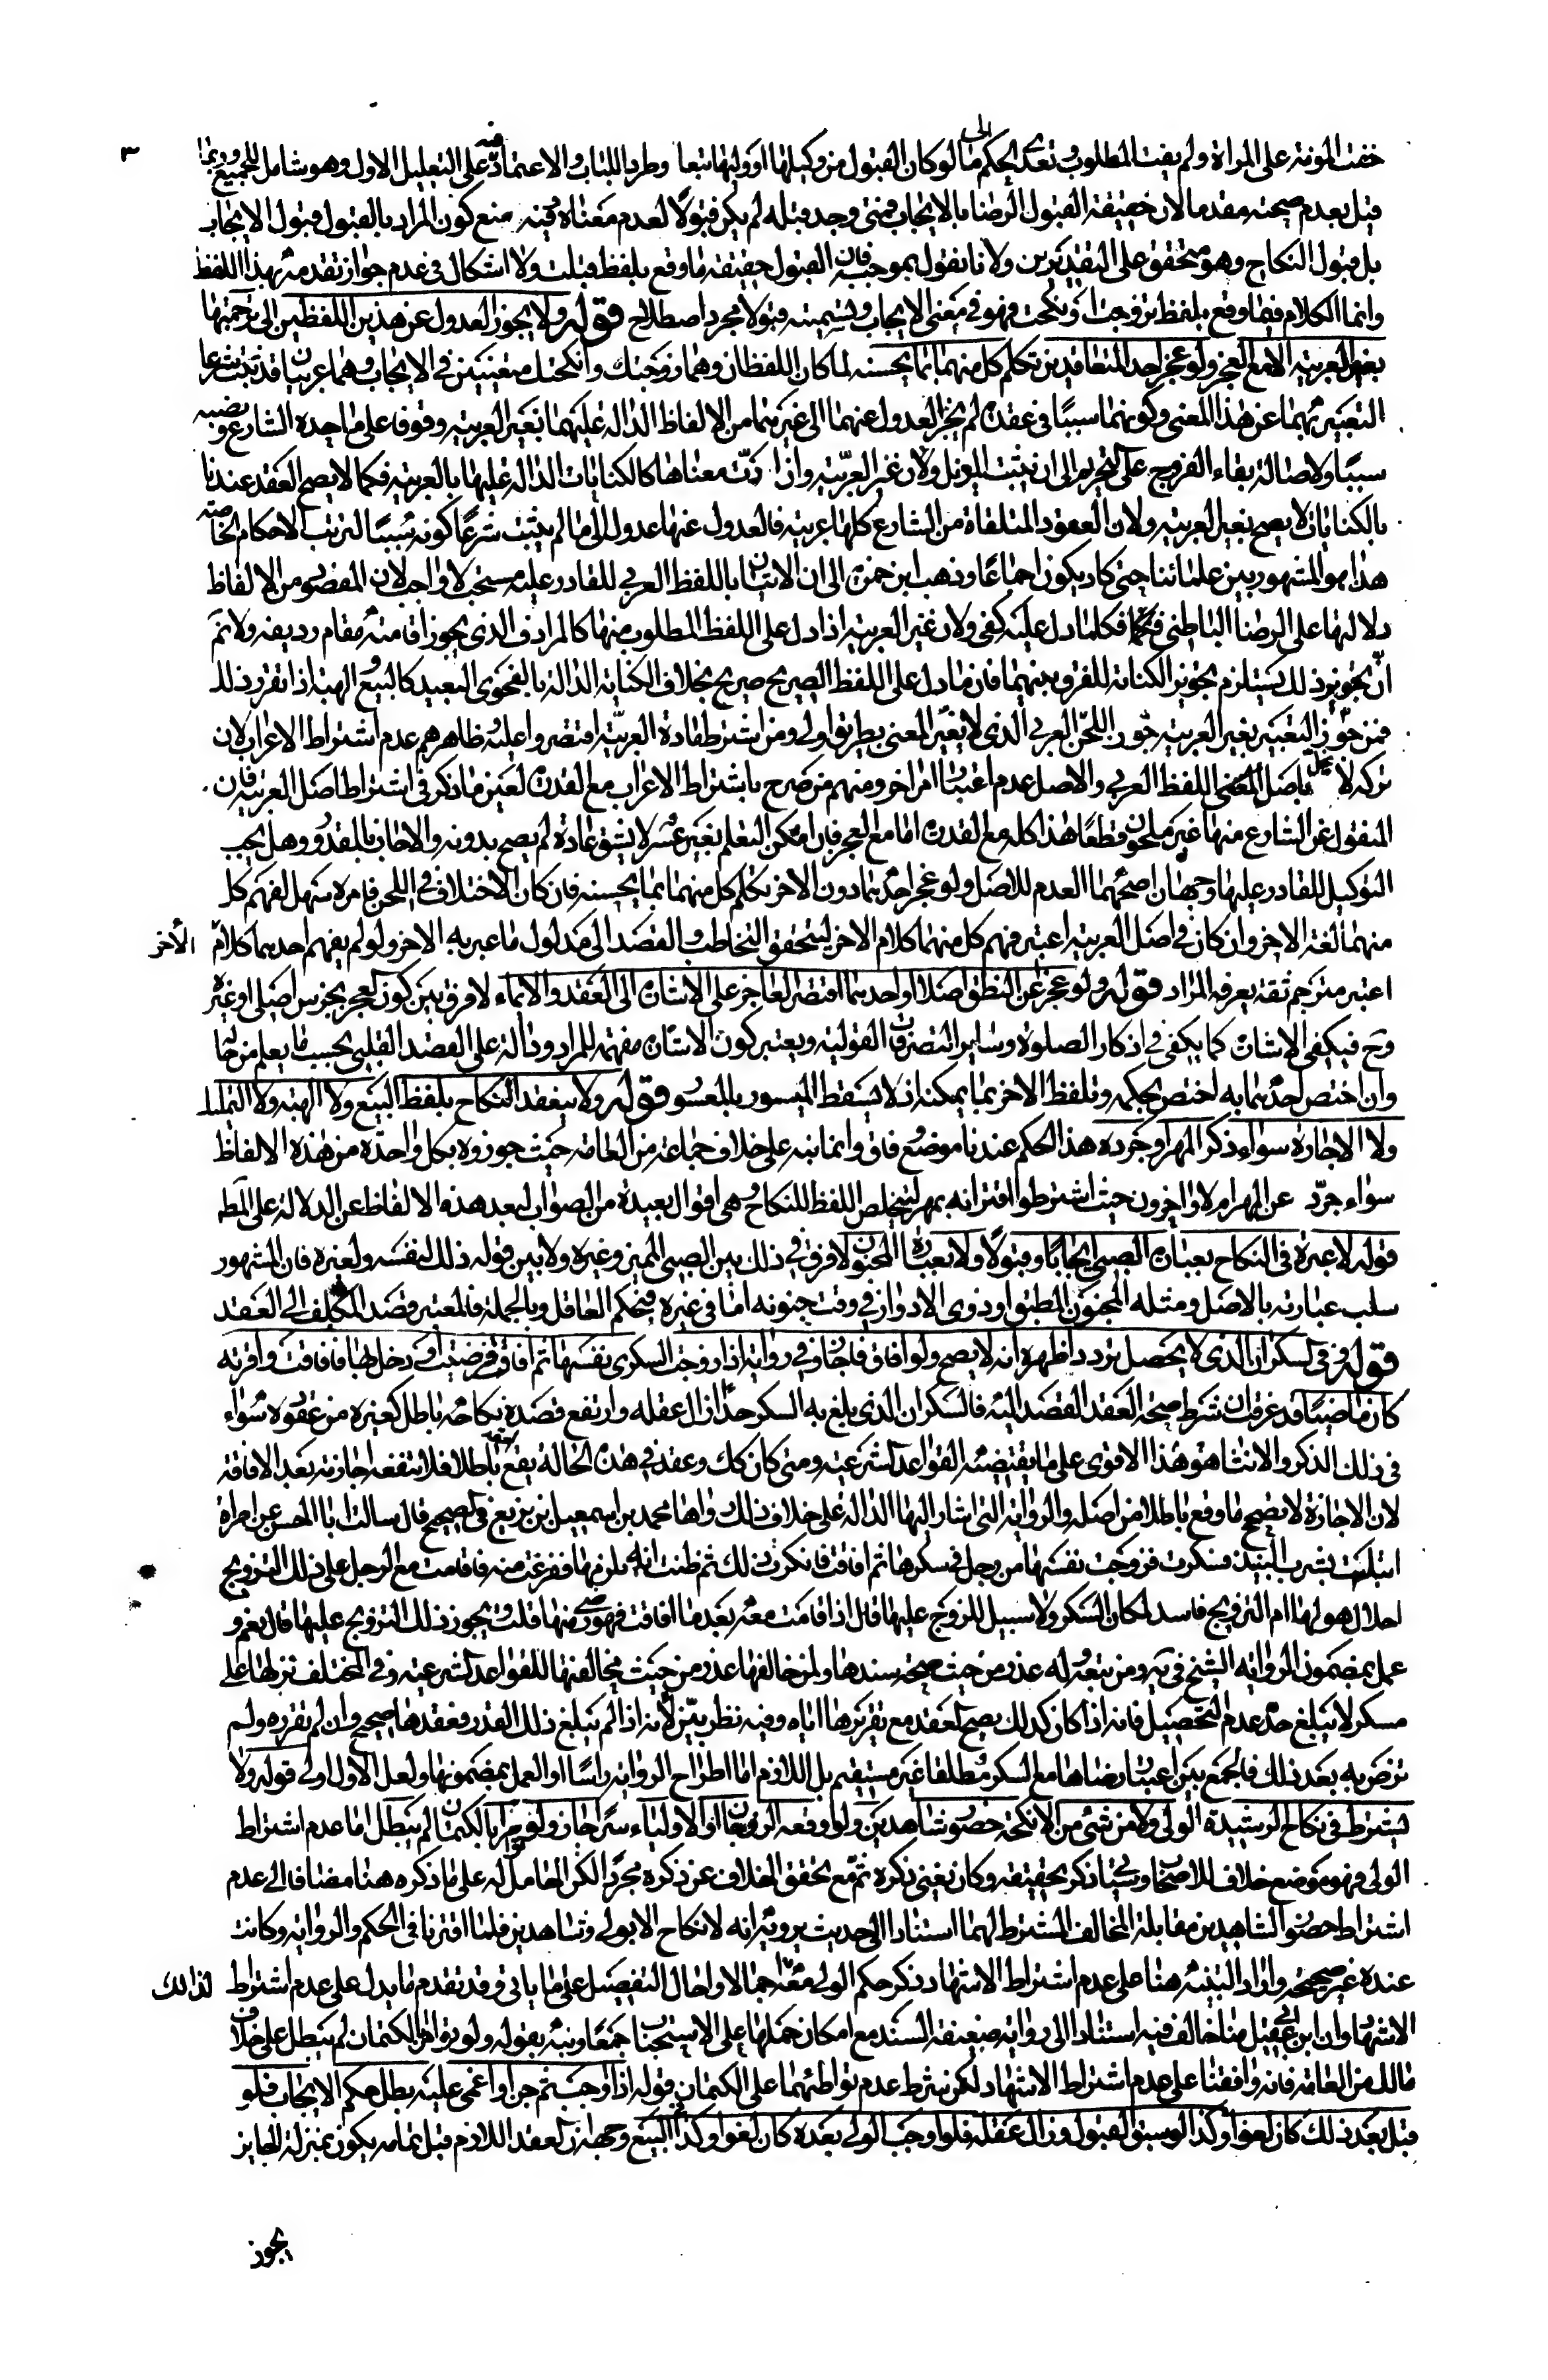 ٣
خفت المؤنة على المراة ولم يفت المطلوب وتعدى الحكم الى ما لو كان القبول من وكيلها او وليها تبعا وطردا للباب والاعتماد فيه على التعليل الاول وهو شامل للجميع وربما
قيل بعدم صحته مقدما لان حقيقة القبول الرضا بالايجاب فمتى وجد قبله لم يكن قبولا لعدم معناه فيه منع كون المراد بالقبول قبول الايجاب
بل قبول النكاح وهو متحقق على التقديرين ولانا نقول بموجبه فان القبول حقيقة ما وقع بلفظ قبلت ولا اشكال في عدم جواز تقدمه بهذا اللفظ
وانما الكلام فيما وقع بلفظ تزوجت او نكحت فهو في معنى الايجاب وتسميته قبولا مجرد اصطلاح قوله ولا يجوز العدول عن هذين اللفظين الى ترجمتهما
بغير العربية الا مع العجز ولو عجز احد المتعاقدين تكلم كل منهما بما يحسنه لما كان اللفظان وهما زوجتك وانكحتك متعينين في الايجاب وهما عربيان قد ثبت شرعا
التعبير بهما عن هذا المعنى وكونهما سببا في عقده لم يجز العدول عنهما الى غيرهما من الالفاظ الدالة عليهما بغير العربية وقوفا على ما حده الشارع ونصبه
سببا ولاصالة بقاء الفروج على التحريم الى ان يثبت المزيل ولان غير العربية وان ادت معناها كالكنايات الدالة عليها بالعربية فكما لا يصح العقد عندنا
بالكنايات لا يصح بغير العربية ولان العقود المتلقاة من الشارع كلها عربية فالعدول عنها عدول الى ما لم يثبت شرعا كونه سببا لترتب الاحكام الخاصة
هذا هو المشهور بين علمائنا حتى كاد يكون اجماعا وذهب ابن حمزة الى ان الاتيان باللفظ العربي للقادر عليه مستحب لا واجب لان المقصود من الالفاظ
دلالتها على الرضا الباطني فكلما دل عليه كفى ولان غير العربية اذا دل على اللفظ المطلوب منها كالمرادف الذي يجوز اقامته مقام رديفه ولا نم
ان تجويز ذلك يستلزم تجويز الكناية للفرق بينهما فان ما دل على اللفظ الصريح صريح بخلاف الكناية الدالة بالفحوى البعيد كالبيع والهبة اذا تقرر ذلك
فمن جوز التعبير بغير العربية جوز اللحن العربي الذي لا يغير المعنى بطريق اولى ومن اشترط مادة العربية اقتصروا عليه ظاهرهم عدم اشتراط الاعراب لان
تركه لا يخل باصل المعنى اللفظ العربي والاصل عدم اعتبار امر اخر ومنهم من صرح باشتراط الاعراب مع القدرة لعين ما ذكر في اشتراط اصل العربية فان
المنقول عن الشارع منها غير ملحون قطعا هذا كله مع القدرة اما مع العجز فان امكن التعلم بغير عسر لا يشق عادة لم يصح بدونه والا جاز بالمقدور وهل يجب
التوكيل للقادر عليها وجهان اصحهما العدم للاصل ولو عجز احدهما دون الاخر تكلم كل منهما بما يحسنه فان كان الاختلاف في اللحن فامره سهل لفهم كل
منهما لغة الاخر وان كان في اصل العربية اعتبر فهم كل منهما كلام الاخر ليتحقق التخاطب والقصد الى مدلول ما عبر به الاخر ولو لم يفهم احدهما كلام الاخر
اعتبر مترجم ثقة يعرفه المراد قوله ولو عجزا عن النطق اصلا او احدهما اقتصر العاجز على الاشارة الى العقد والايماء لا فرق بين كون العجز بخرس اصلي او غيره
وح فيكفي الاشارة كما يكفي في اذكار الصلوة وساير التصرفات القولية ويعتبر كون الاشارة مفهمة للمراد ودالة على القصد القلبي بحسب ما يعلم من حاله
وان اختص احدهما به اختص بحكمه وتلفظ الاخر بما يمكنه اذ لا يسقط الميسور بالمعسور قوله ولا ينعقد النكاح بلفظ البيع ولا الهبة ولا التمليك
ولا الاجارة سواء ذكر المهر او جرده هذا الحكم عندنا موضع وفاق وانما نبه على خلاف جماعة من العامة حيث جوزوه بكل واحدة من هذه الالفاظ
سواء جرد عن المهر ام لا واخرون حيث اشترطوا اقترانه بمهر ليتخلص اللفظ للنكاح وهي اقوال بعيدة من الصواب لبعد هذه الالفاظ عن الدلالة على المط
قوله لا عبرة في النكاح بعبارة الصبي ايجابا وقبولا ولا بعبارة المجنون لا فرق في ذلك بين الصبي المميز وغيره ولا بين قوله ذلك لنفسه ولغيره فان المشهور
سلب عبارته بالاصل ومثله المجنون المطبق او ذوي الادوار في وقت جنونه اما في غيره فبحكم العاقل وبالجملة فالمعتبر قصد المكلف الى العقد
قوله وفي السكران الذي لا يحصل تردد اظهره انه لا يصح ولو افاق فاجاز وفي رواية اذا زوجت السكرى نفسها ثم افاقت فرضيت او دخل بها فافاقت واقرته
كان ماضيا قد عرفت ان شرط صحة العقد القصد اليه فالسكران الذي بلغ به السكر حدا زال عقله وارتفع قصده نكاحه باطل كغيره من عقوده سواء
في ذلك الذكر والانثى هذا هو الاقوى على ما يقتضيه القواعد الشرعية ومتى كان كك وعقد في هذه الحالة يقع باطلا فلا تنفعه اجازته بعد الافاقة
لان الاجازة لا يصحح ما وقع باطلا من اصله والرواية التي اشار اليها الدالة على خلاف ذلك رواها محمد بن اسمعيل بن بزيع في الصحيح قال سالت ابا الحسن عن امراة
ابتليت بشرب النبيذ فسكرت فزوجت نفسها من رجل في سكرها ثم افاقت فانكرت ذلك ثم ظنت انه يلزمها ففزعت منه فاقامت مع الرجل على ذلك التزويج
احلال هو لها ام التزويج فاسد لمكان السكر ولا سبيل للزوج عليها قال اذا اقامت معه بعد ما افاقت فهو رضى منها قلت ويجوز ذلك التزويج عليها قال نعم و
عمل بمضمون الرواية الشيخ في ية ومن تبعه وله عذر من حيث صحة سندها ولمن خالفها عذر من حيث مخالفتها للقواعد الشرعية وفي المختلف نزلها على
مسكر لا يبلغ حد عدم التحصيل فانه اذا كان كذلك يصح العقد مع تقريرها اياه وفيه نظر بين لانه اذا لم يبلغ ذلك القدر فعقدها صحيح وان لم تقرره ولم
ترض به بعد ذلك فالجمع بين اعتبار رضاها مع السكر مطلقا غير مستقيم بل اللازم اما اطراح الرواية راسا او العمل بمضمونها ولعل الاول اولى قوله ولا
يشترط في نكاح الرشيدة الولي ولا من شئ من الانكحة حضور شاهدين ولو اوقعه الزوجان او الاولياء سرا جاز ولو تؤامرا بالكتمان لم يبطل اما عدم اشتراط
الولي فهو موضع خلاف للاصحاب وسياتي ذكر تحقيقه وكان يغني ذكره ثم مع تحقق الخلاف عن ذكره مجردا لكن الحامل له على ما ذكره هنا مضافا الى عدم
اشتراط حضور الشاهدين مقابلة المخالف المشترط لهما استنادا الى حديث يرويه انه لا نكاح الا بولي وشاهدين فلما اقترنا في الحكم والرواية وكانت
عنده غير صحيحة واراد التنبيه هنا على عدم اشتراط الاشهاد ذكر حكم الولي معه اجمالا واحال التفصيل على ما ياتي وقد تقدم ما يدل على عدم اشتراط لذلك
الاشهاد وان ابن ابي عقيل منا خالف فيه استنادا الى رواية ضعيفة السند مع امكان حملها على الاستحباب جمعا ونبه بقوله ولو تؤامرا الكتمان لم يبطل على خلاف
مالك من العامة فانه وافقنا على عدم اشتراط الاشهاد لكن شرط عدم تواطئهما على الكتمان قوله اذا اوجب ثم جن او اغمى عليه بطل حكم الايجاب فلو
قبل بعد ذلك كان لغوا وكذا لو سبق القبول وزال عقله فلو اوجب الولي بعده كان لغوا وكذا في البيع وجهه ان العقد اللازم قبل تمامه يكون بمنزلة الجايز
يجوز